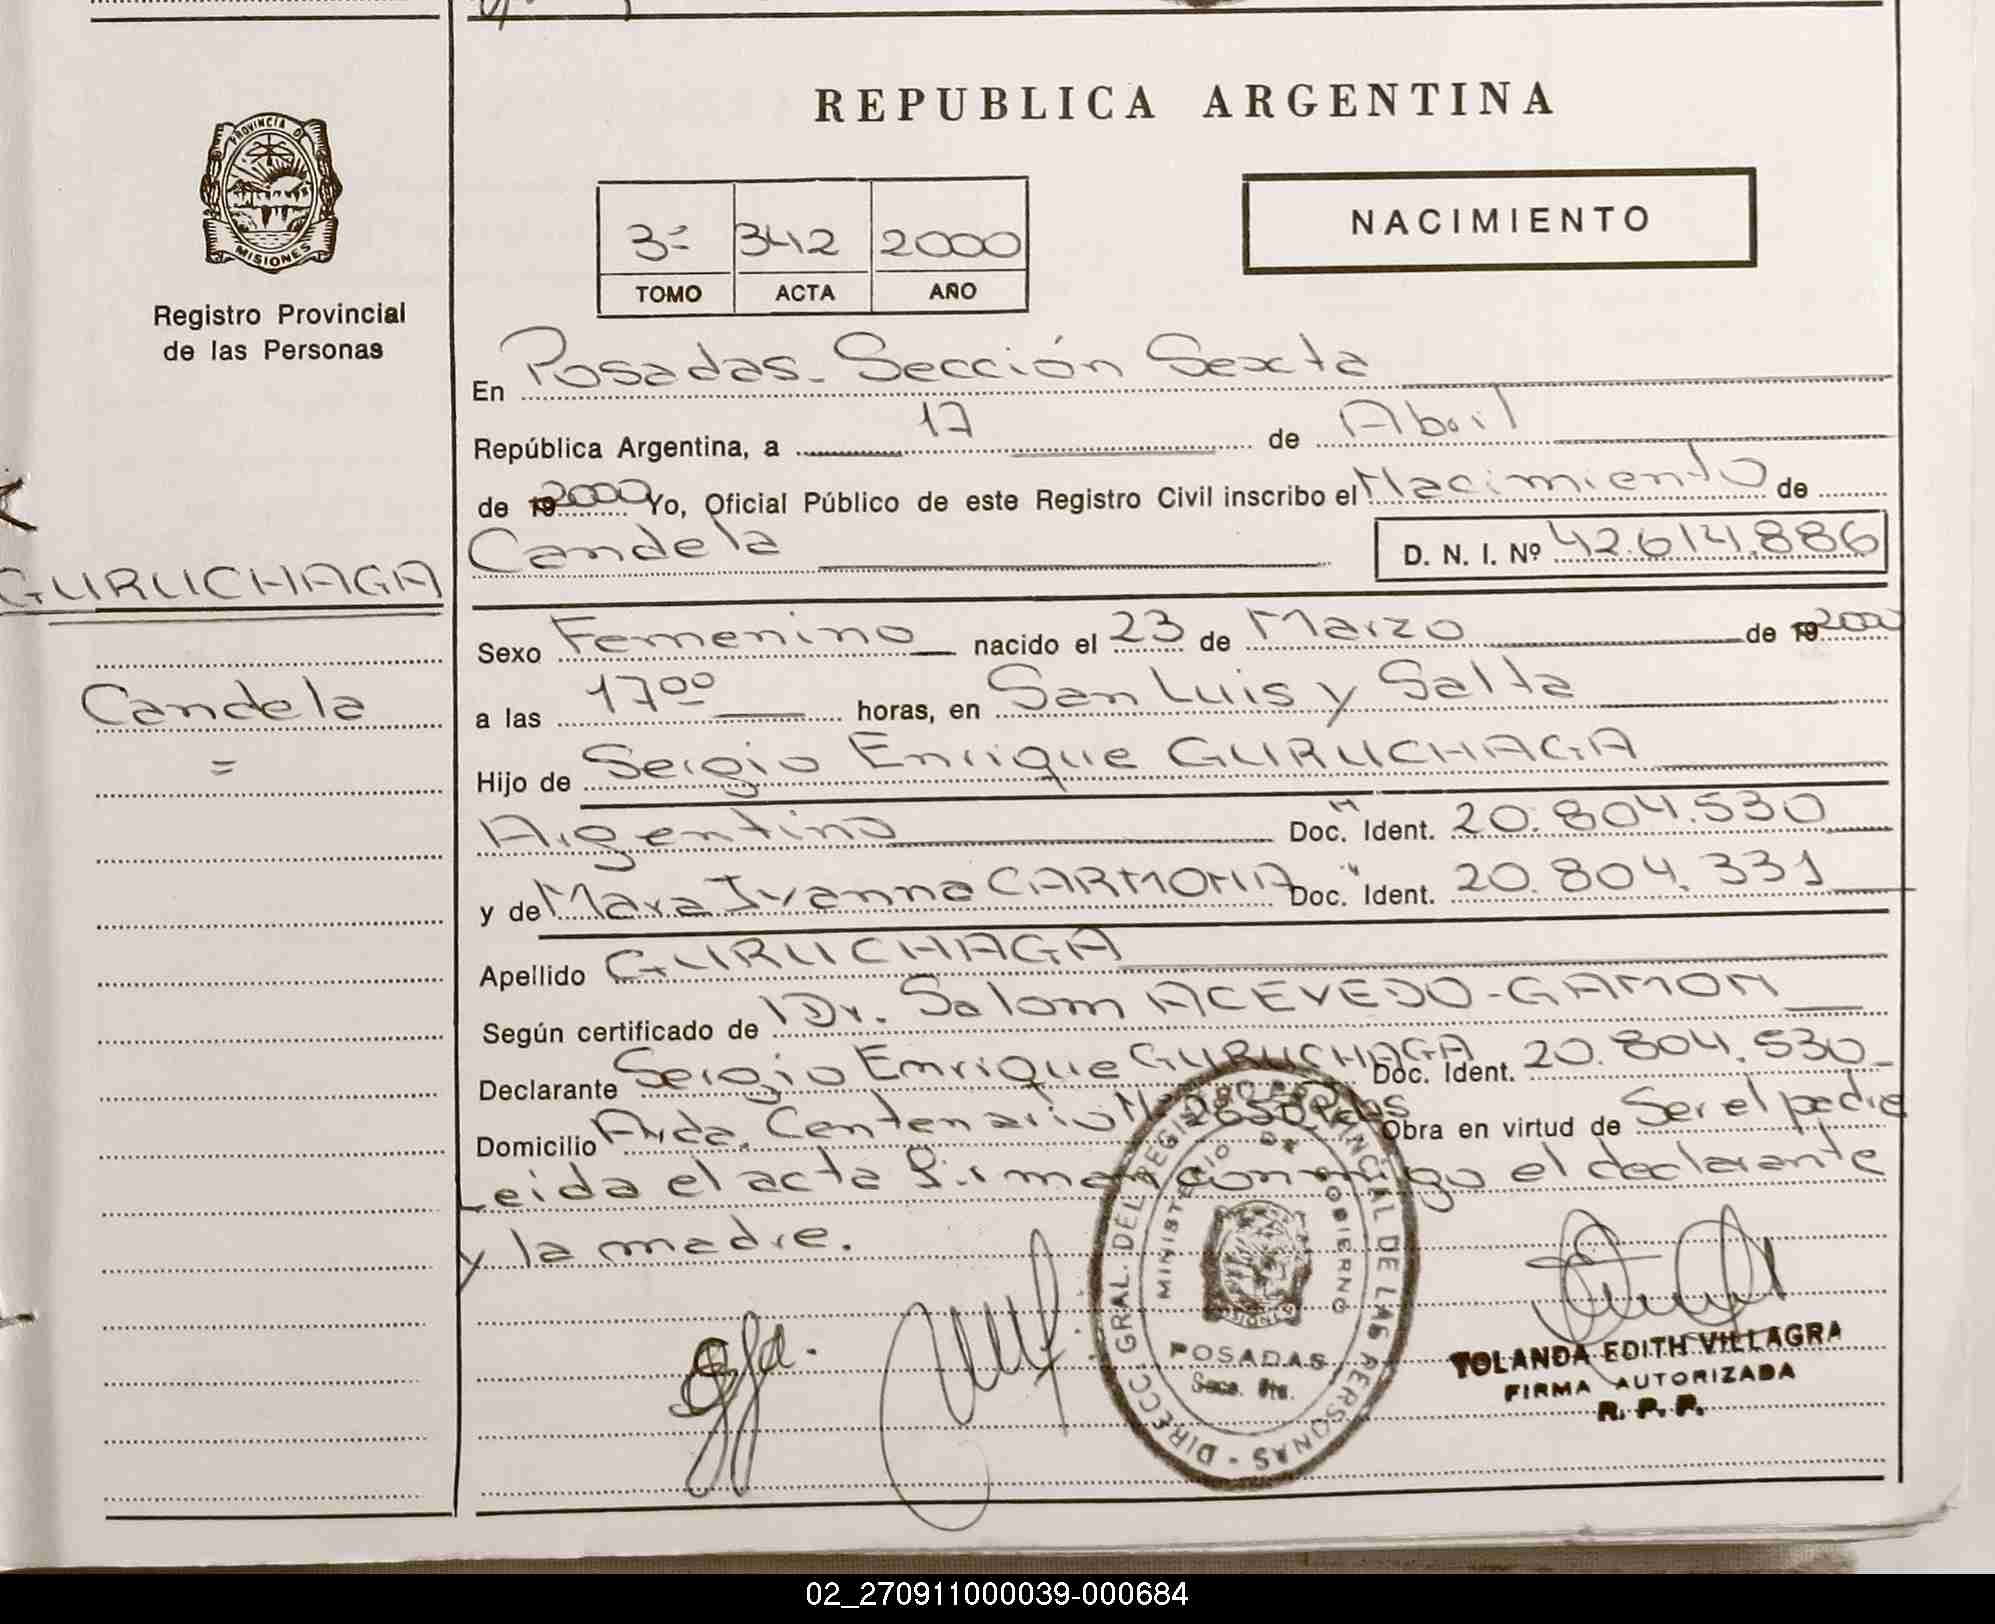 REPUBLICA ARGENTINA
PROVINCIA D
MISIONES
Registro Provincial
de las Personas
NACIMIENTO
3= 342 2000
TOMO ACTA AÑO
En Posadas. Sección Sexta
República Argentina, a 17 de Abril
de 19 2000 Yo, Oficial Público de este Registro Civil inscribo el Nacimiento de
Candela D. N. I. Nº 42.614.886
GURUCHAGA
Candela
=
Sexo Femenino nacido el 23 de Marzo de 19 2000
a las 17⁰⁰ horas, en San Luis y Salta
Hijo de Sergio Enrique GURUCHAGA
Argentino Doc. N Ident. 20.804.530
y de Mara Ivanna CARMONA Doc. " Ident. 20.804.331
Apellido GURUCHAGA
Según certificado de Dr. Salom ACEVEDO-GAMON
Declarante Sergio Enrique GURUCHAGA Doc. Ident. 20.804.530
Domicilio Avda. Centenario Nº 2650. Pdas Obra en virtud de Ser el padre
Leida el acta firman conmigo el declarante
y la madre.
DIRECC. GRAL. DEL REGISTRO PROVINCIAL DE LAS PERSONAS -
MINISTERIO DE GOBIERNO
MISIONES
POSADAS
Secc. 6ta.
YOLANDA EDITH VILLAGRA
FIRMA AUTORIZADA
R. P. P.
02_270911000039-000684